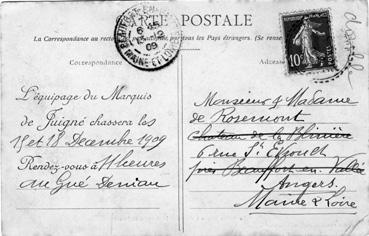 CARTE POSTALE
La Correspondance au recto n'est pas acceptée par tous les Pays étrangers. (Se rense
Correspondance
Adresse
BEAUFORT-EN-
12
09
MAINE-ET-LOIRE
10
POSTES
double
L'équipage du Marquis
de Puigné chassera les
15 et 18 Décembre 1909
Rendez-vous à 11 heures
au Gué Deniau
Monsieur & Madame
de Rosemont
chateau de la Blinière
6 rue St Evroult
près Beaufort en Vallée
Angers.
Maine & Loire